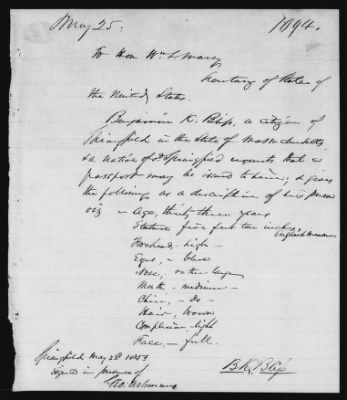 May 25.
1094.
To Hon Wm L Marcy
Secretary of State of
the United States.
Benjamin K. Bliss, a citizen of
Springfield in the State of Massachusetts
& a native of sd Springfield requests that a
passport may be issued to him; & gives
the following as a description of his person
viz - Age, thirty three years
Stature five feet ten inches, English measure
Forehead - high -
Eyes, - blue
Nose, rather large
Mouth - medium -
Chin, - do -
Hair, brown
Complexion, light
Face, - full.
Springfield May 23d 1853
Signed in presence of
Geo. Ashmun
B.K. Bliss